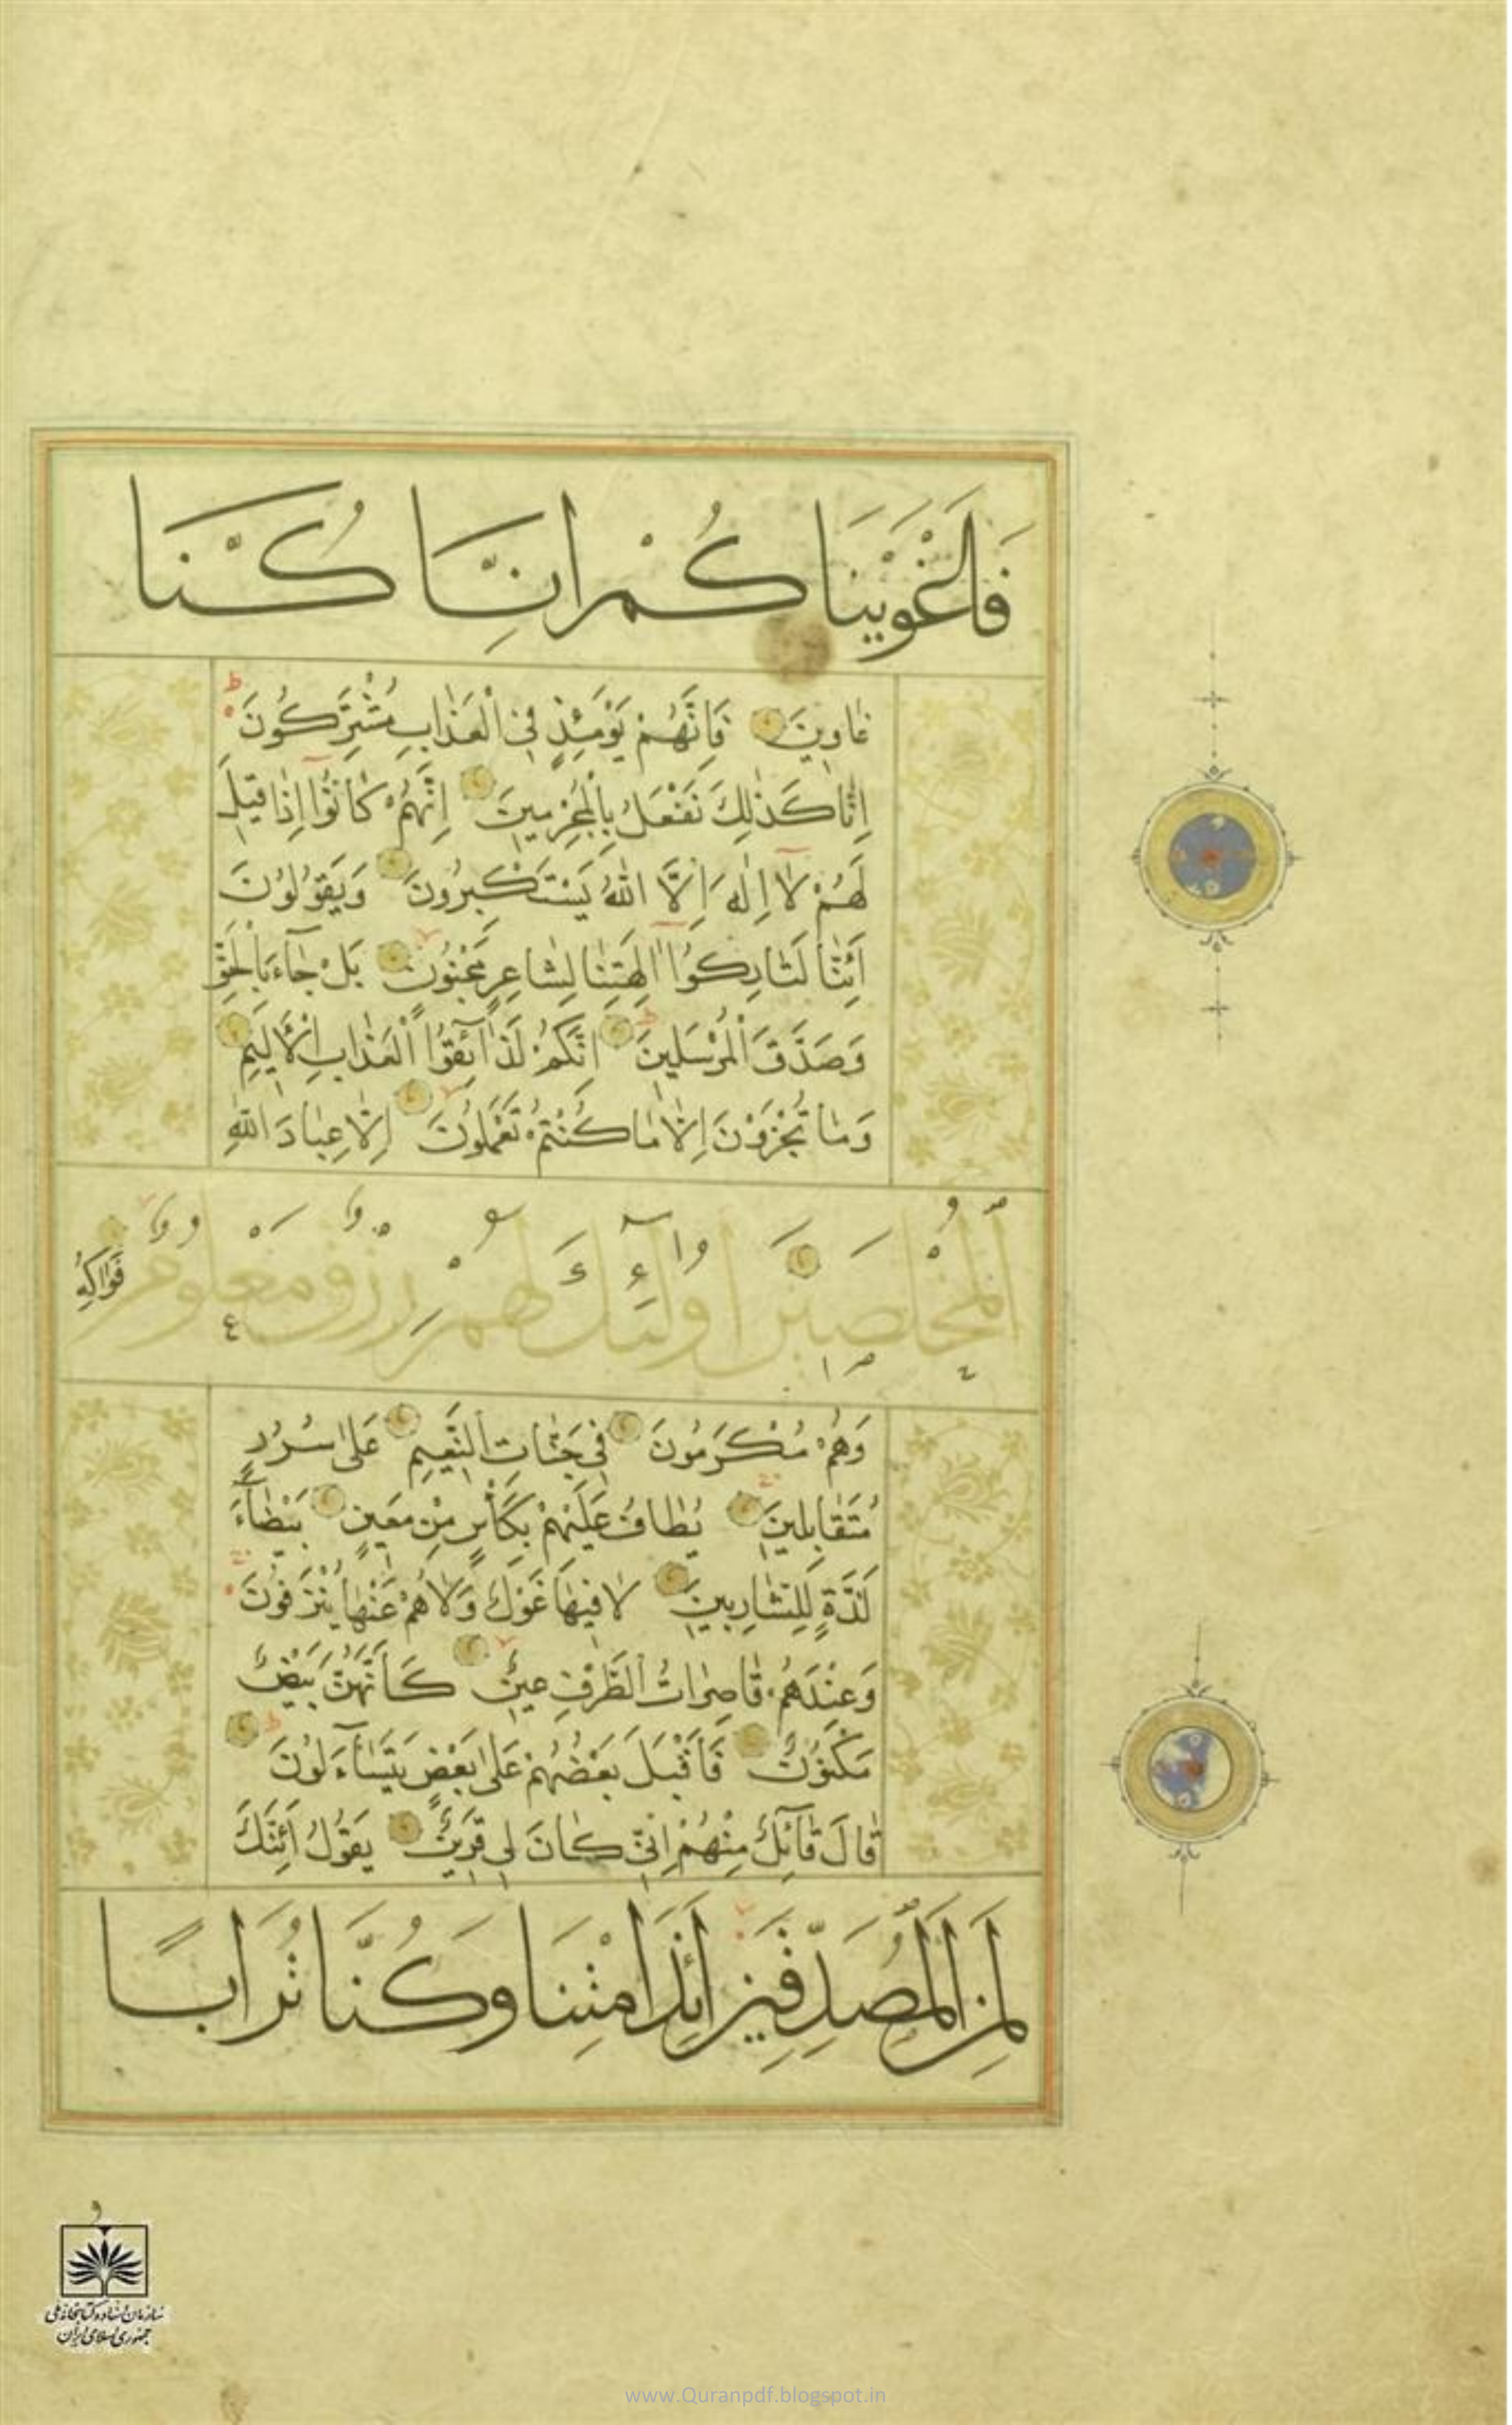 فَاَغْوَيْنَا كُمْ اِنَّا كُنَّا
غاوِينَ فَاِنَّهُمْ يَوْمَئِذٍ فِى الْعَذابِ مُشْتَرِكُونَ ط
اِنّا كَذٰلِكَ نَفْعَلُ بِالْمُجْرِمينَ اِنَّهُمْ كانُوٓا اِذا قيلَ
لَهُمْ لآ اِلٰهَ اِلَّا اللهُ يَسْتَكْبِرُونَ وَيَقُولُونَ
اَئِنّا لَتارِكُوٓا اٰلِهَتِنا لِشاعِرٍ مَجْنُونٍ بَلْ جآءَ بِالْحَقِّ
وَصَدَّقَ الْمُرْسَلينَ اِنَّكُمْ لَذآئِقُوا الْعَذابِ الْاَليمِ
وَما تُجْزَوْنَ اِلّا ما كُنْتُمْ تَعْمَلُونَ اِلّا عِبادَ اللهِ
الْمُخْلَصينَ اُولٰٓئِكَ لَهُمْ رِزْقٌ مَعْلُومٌ فَواكِهُ
وَهُمْ مُكْرَمُونَ فى جَنّاتِ النَّعيمِ عَلىٰ سُرُرٍ
مُتَقابِلينَ يُطافُ عَلَيْهِمْ بِكَأْسٍ مِنْ مَعينٍ بَيْضآءَ
لَذَّةٍ لِلشّارِبينَ لا فيها غَوْلٌ وَلا هُمْ عَنْها يُنْزَفُونَ
وَعِنْدَهُمْ قاصِراتُ الطَّرْفِ عينٌ كَاَنَّهُنَّ بَيْضٌ
مَكْنُونٌ فَاَقْبَلَ بَعْضُهُمْ عَلىٰ بَعْضٍ يَتَسآءَلُونَ ط
قالَ قآئِلٌ مِنْهُمْ اِنّى كانَ لى قَرينٌ يَقُولُ اَئِنَّكَ
لَمِنَ الْمُصَدِّقِينَ اَئِذَا مِتْنَا وَكُنَّا تُرَابًا
سازمان اسناد و کتابخانه ملی
جمهوری اسلامی ایران
www.Quranpdf.blogspot.in